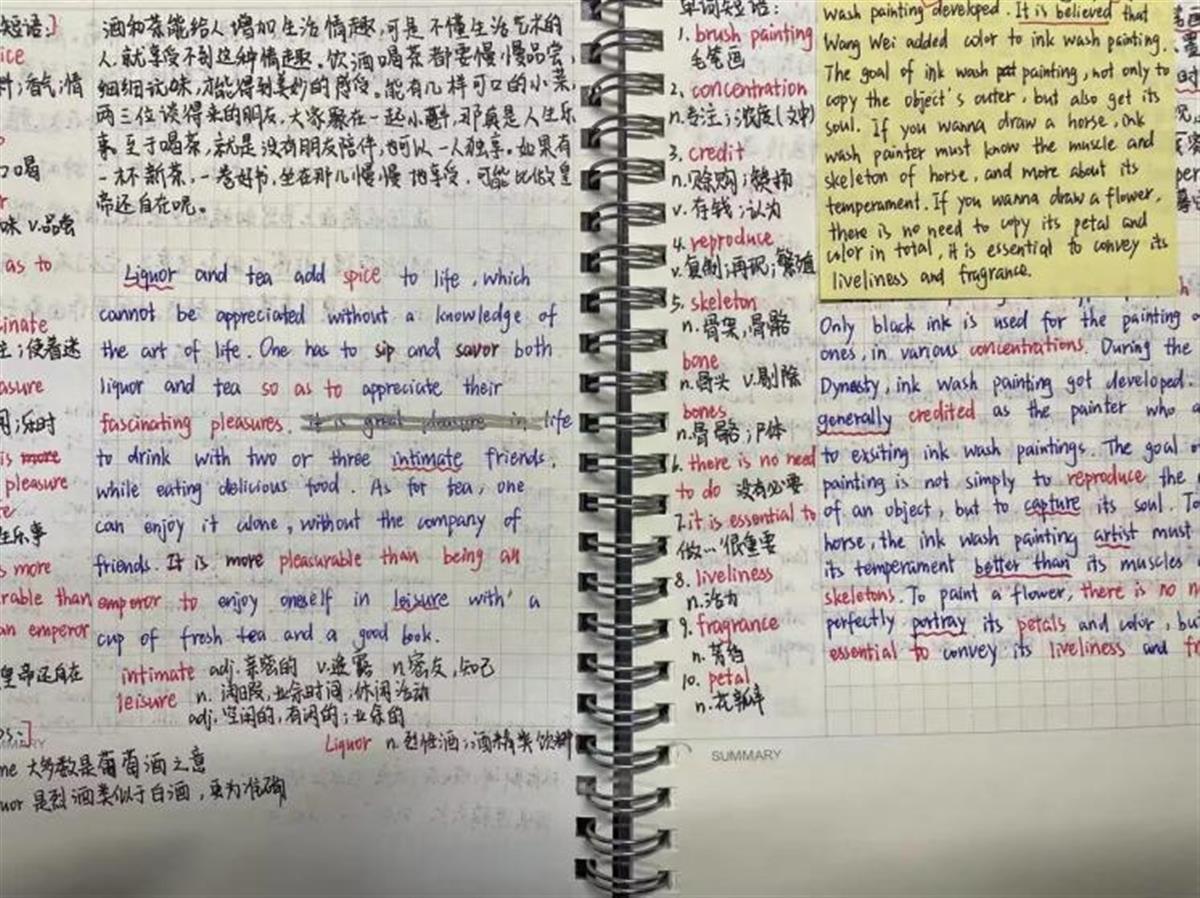 短语:]
酒和茶能给人增加生活情趣,可是不懂生活艺术的
人,就享受不到这种情趣。饮酒喝茶都要慢慢品尝,
细细试味,才能得到美妙的感受。能有几样可口的小菜,
两三位谈得来的朋友,大家聚在一起小酌,那真是人生乐
事。至于喝茶,就是没有朋友陪伴,也可以一人独享。如果有
一杯新茶,一卷好书,坐在那儿慢慢地享受,可能比做皇
帝还自在呢。
ice
料;香气;情
口喝
味 v.品尝
as to
inate
主;使着迷
asure
用;乐时
is more
pleasure
生乐事
s more
rable than
an emperor
皇帝还自在
Liquor and tea add spice to life, which
cannot be appreciated without a knowledge of
the art of life. One has to sip and savor both
liquor and tea so as to appreciate their
fascinating pleasures. It is great pleasure in life
to drink with two or three intimate friends,
while eating delicious food. As for tea, one
can enjoy it alone, without the company of
friends. It is more pleasurable than being an
emperor to enjoy oneself in leisure with a
cup of fresh tea and a good book.
intimate adj.亲密的 v.透露 n.密友,知己
leisure n. 闲暇,业余时间;休闲活动
adj.空闲的,有闲的;业余的
Liquor n.烈性酒;酒精类饮料
ne 大多数是葡萄酒之意
uor 是烈酒类似于白酒,更为准确
单词短语:
1. brush painting
毛笔画
2. concentration
n.专注;浓度(文中)
3. credit
n.赊购;赞扬
v.存钱;认为
4. reproduce
v.复制;再现;繁殖
5. skeleton
n.骨架,骨骼
bone
n.骨头 v.剔除
bones
n.骨骼;尸体
6. there is no need
to do 没有必要
7. it is essential to
做…很重要
8. liveliness
n.活力
9. fragrance
n.芳香
10. petal
n.花瓣
wash painting developed. It is believed that
Wang Wei added color to ink wash painting.
The goal of ink wash pat painting, not only to
copy the object's outer, but also get its
soul. If you wanna draw a horse, ink
wash painter must know the muscle and
skeleton of horse, and more about its
temperament. If you wanna draw a flower,
there is no need to copy its petal and
color in total, it is essential to convey its
liveliness and fragrance.
Only black ink is used for the painting
ones, in various concentrations. During the
Dynasty, ink wash painting got developed.
generally credited as the painter who
to exsiting ink wash paintings. The goal
painting is not simply to reproduce the
of an object, but to capture its soul. To
horse, the ink wash painting artist must
its temperament better than its muscles
skeletons. To paint a flower, there is no n
perfectly portray its petals and color, but
essential to convey its liveliness and fr
SUMMARY